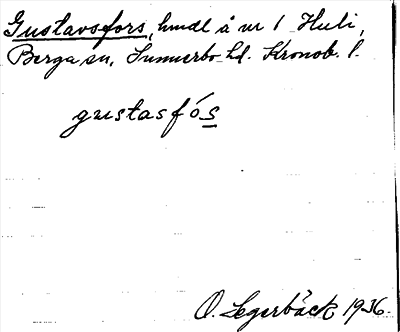 Gustavsfors, hmdl å nr 1 Huli,
Berga sn, Sunnerbo hd. Kronob. l.
gustasfós
O. Segerbäck 1936.